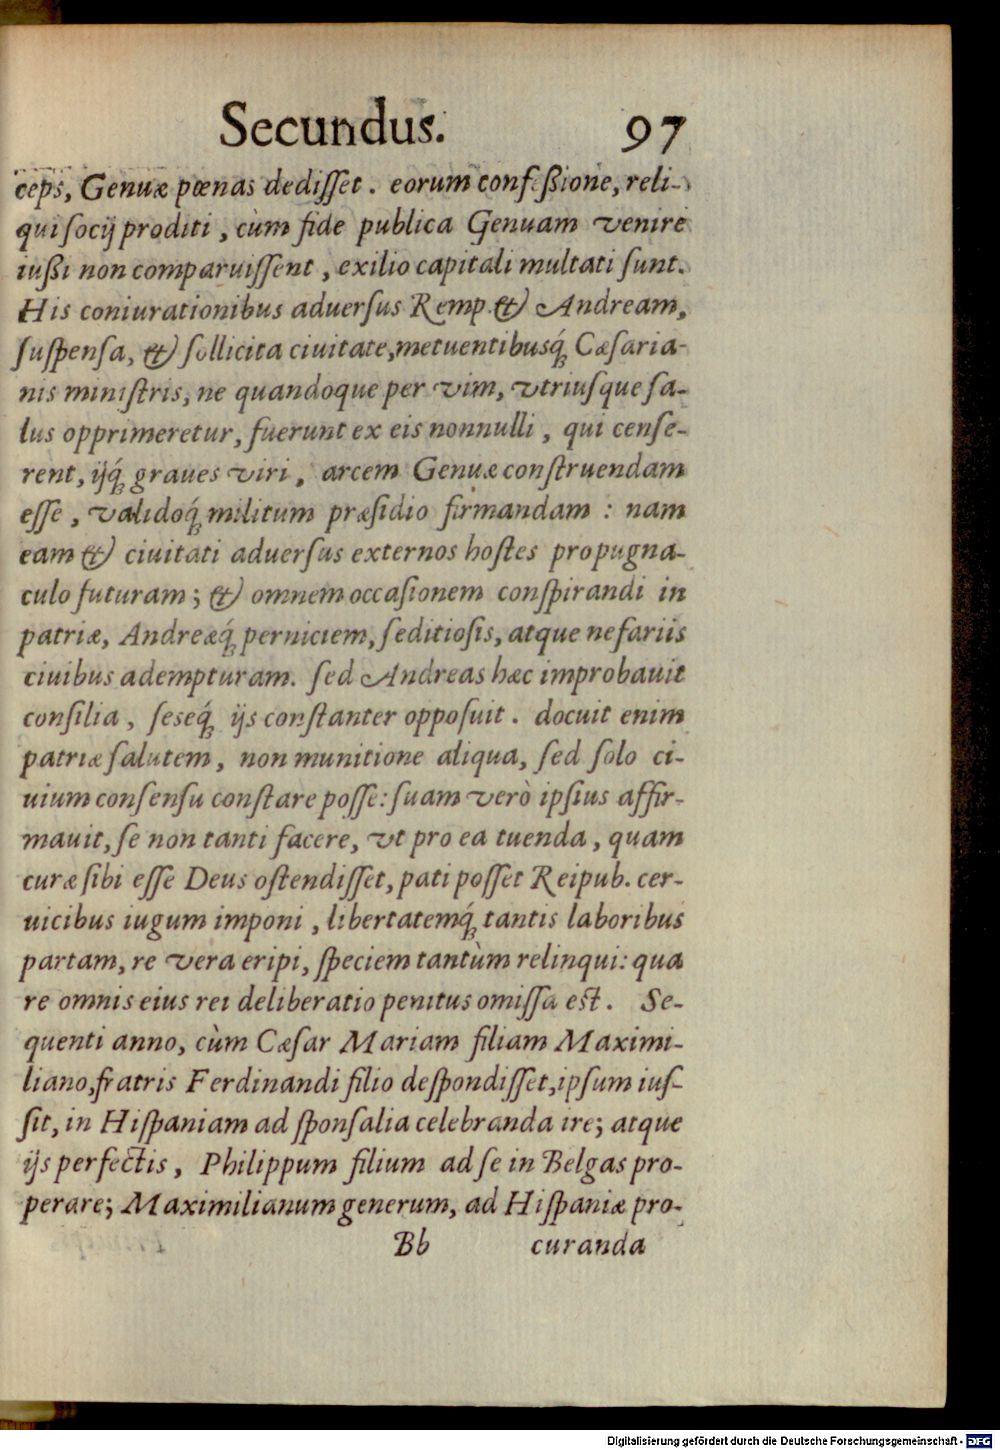 Secundus. 97
ceps, Genuæ pœnas dediſſet. eorum confeßione, reli-
qui ſocij proditi, cùm fide publica Genuam venire
iußi non comparuiſſent, exilio capitali multati ſunt.
His coniurationibus aduerſus Remp. & Andream,
ſuſpenſa, & ſollicita ciuitate, metuentibusq́; Cæſaria-
nis miniſtris, ne quandoque per vim, vtriuſque ſa-
lus opprimeretur, fuerunt ex eis nonnulli, qui cenſe-
rent, ijq́; graues viri, arcem Genuæ conſtruendam
eſſe, validoq́; militum præſidio firmandam: nam
eam & ciuitati aduerſus externos hoſtes propugna-
culo futuram; & omnem occaſionem conſpirandi in
patriæ, Andreæq́; perniciem, ſeditioſis, atque nefariis
ciuibus adempturam. ſed Andreas hæc improbauit
conſilia, ſeseq́; ijs conſtanter oppoſuit. docuit enim
patriæ ſalutem, non munitione aliqua, ſed ſolo ci-
uium conſenſu conſtare poſſe: ſuam verò ipſius affir-
mauit, ſe non tanti facere, vt pro ea tuenda, quam
curæ ſibi eſſe Deus oſtendiſſet, pati poſſet Reipub. cer-
uicibus iugum imponi, libertatemq́; tantis laboribus
partam, re vera eripi, ſpeciem tantùm relinqui: qua
re omnis eius rei deliberatio penitus omiſſa eſt. Se-
quenti anno, cùm Cæſar Mariam filiam Maximi-
liano, fratris Ferdinandi filio deſpondiſſet, ipſum iuſ-
ſit, in Hiſpaniam ad ſponſalia celebranda ire; atque
ijs perfectis, Philippum filium ad ſe in Belgas pro-
perare; Maximilianum generum, ad Hiſpaniæ pro-
Bb curanda
Digitalisierung gefördert durch die Deutsche Forschungsgemeinschaft - DFG